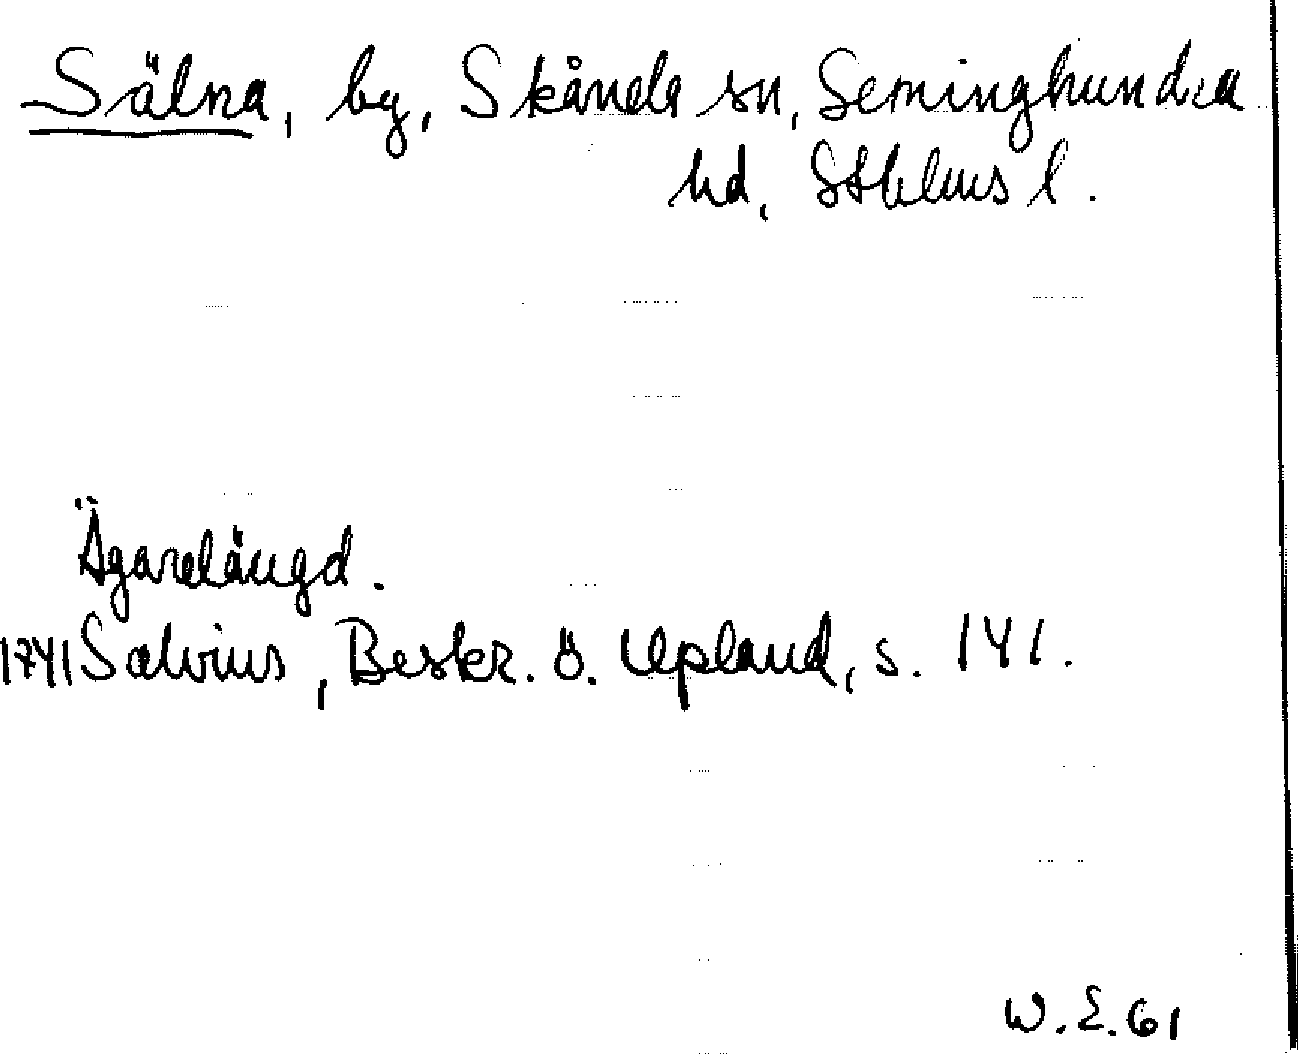 Sälna, by, Skånela sn, Seminghundra
hd, Sthlms l.
Ägarelängd.
1741 Salvius, Beskr. ö. Upland, s. 141.
W.E.61